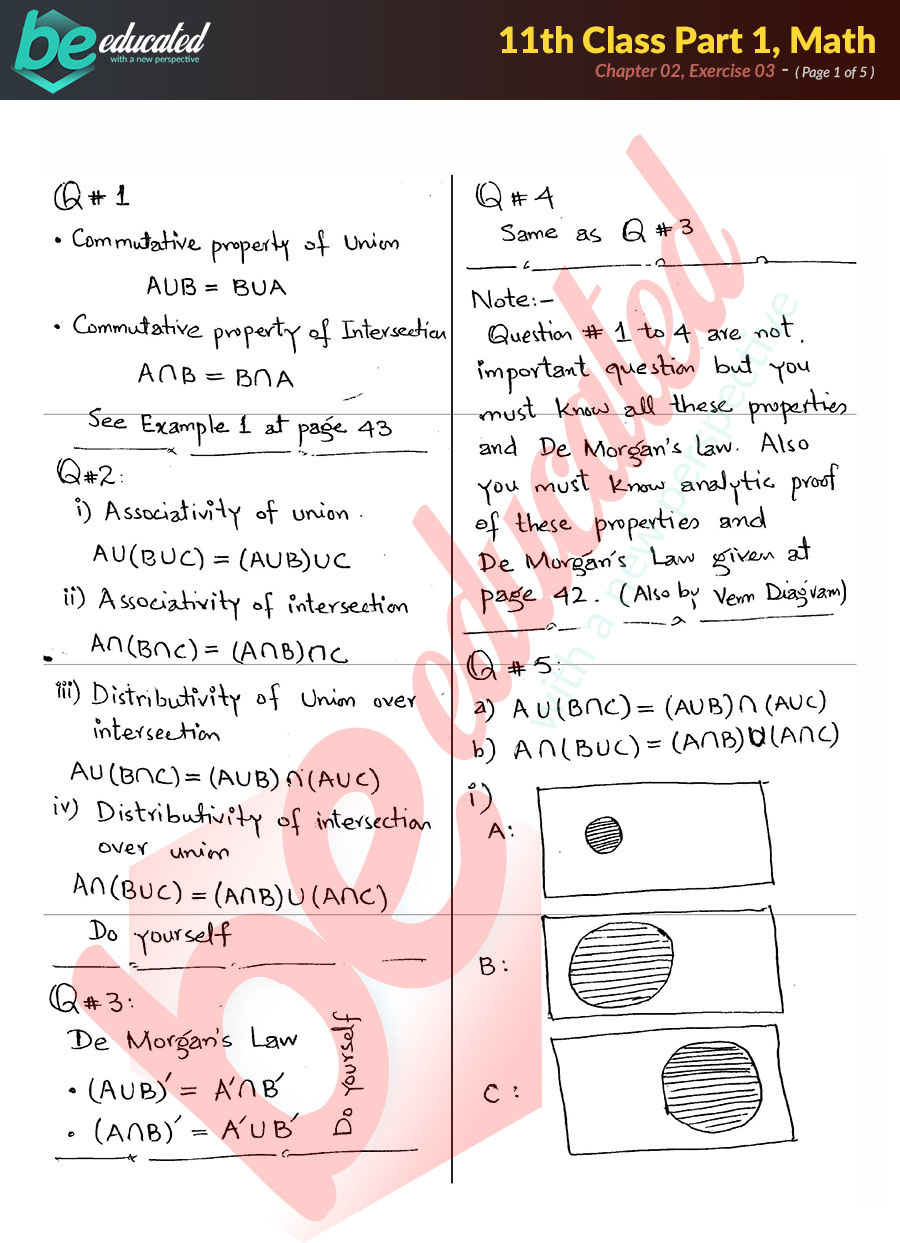 be educated
with a new perspective
11th Class Part 1, Math
Chapter 02, Exercise 03 - ( Page 1 of 5 )
Q # 1
• Commutative property of Union
A∪B = B∪A
• Commutative property of Intersection
A∩B = B∩A
See Example 1 at page 43
Q#2:
i) Associativity of union.
A∪(B∪C) = (A∪B)∪C
ii) Associativity of intersection
A∩(B∩C) = (A∩B)∩C
iii) Distributivity of Union over
intersection
A∪(B∩C) = (A∪B)∩(A∪C)
iv) Distributivity of intersection
over union
A∩(B∪C) = (A∩B)∪(A∩C)
Do yourself
Q#3:
De Morgan's Law
• (A∪B)′ = A′∩B′
• (A∩B)′ = A′∪B′
Do yourself
Q # 4
Same as Q # 3
Note:-
Question # 1 to 4 are not.
important question but you
must know all these properties
and De Morgan's law. Also
you must know analytic proof
of these properties and
De Morgan's Law given at
page 42. (Also by Venn Diagram)
Q # 5:
a) A∪(B∩C) = (A∪B)∩(A∪C)
b) A∩(B∪C) = (A∩B)∪(A∩C)
i)
A:
B:
C:
be educated
with a new perspective